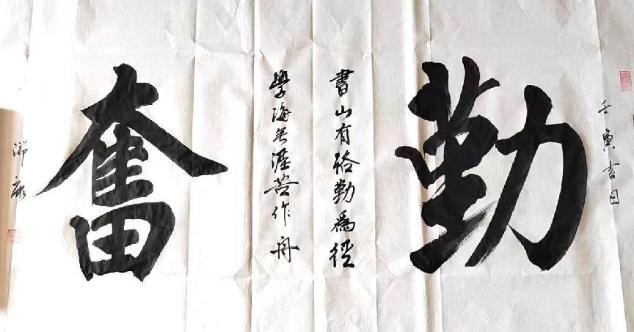 壬寅吉日
勤
書山有路勤為徑
學海無涯苦作舟
奮